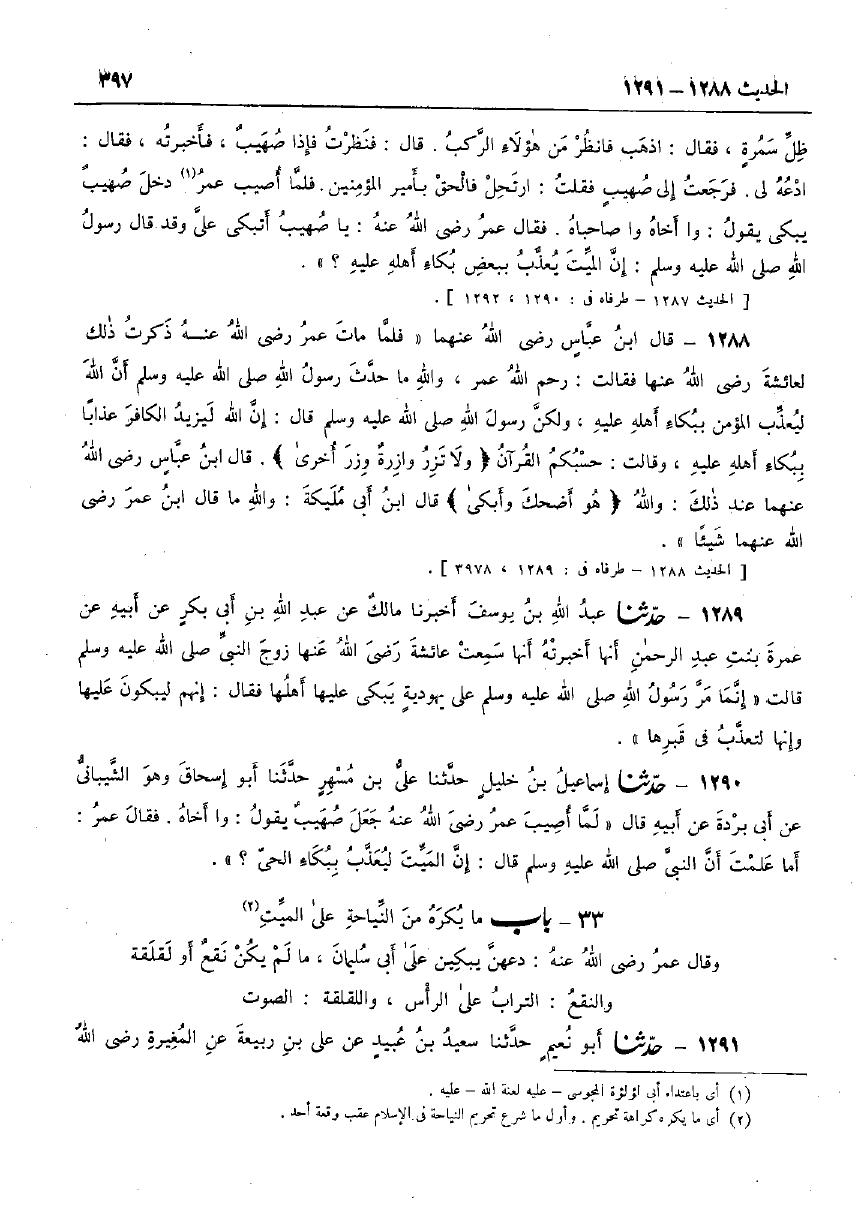 الحديث ١٢٨٨ – ١٢٩١
٣٩٧
ظِلِّ سَمُرةٍ ، فقال : اذهَب فانظُرْ مَن هٰؤلاءِ الرَّكبُ . قال : فنَظرْتُ فإذا صُهَيبٌ ، فأَخبرتُه ، فقال :
ادْعُهُ لى . فرَجَعتُ إلى صُهيبٍ فقلتُ : ارتَحِلْ فالْحقْ بأَميرِ المؤمنين . فلمَّا أُصيب عمرُ(١) دخلَ صُهيبٌ
يبكى يقولُ : وا أخاهُ وا صاحباهُ . فقال عمرُ رضى اللهُ عنهُ : يا صُهَيبُ أتبكى علىَّ وقد قال رسولُ
اللهِ صلى الله عليه وسلم : إنَّ الميِّتَ يُعذَّبُ ببعضِ بُكاءِ أهلهِ عليهِ ؟ » .
[ الحديث ١٢٨٧ – طرفاه فى : ١٢٩٠ ، ١٢٩٢ ] .
١٢٨٨ – قال ابنُ عبَّاسٍ رضى اللهُ عنهما « فلمَّا ماتَ عمرُ رضى اللهُ عنـــهُ ذَكرتُ ذٰلك
لعائشةَ رضى اللهُ عنها فقالت : رحم اللهُ عمر ، واللهِ ما حدَّثَ رسولُ اللهِ صلى الله عليه وسلم أَنَّ اللهَ
ليُعذِّب المؤمن ببُكاءِ أهلهِ عليهِ ، ولكنَّ رسولَ اللهِ صلى الله عليه وسلم قال : إنَّ الله لَيزيدُ الكافرَ عذابًا
بِبُكاءِ أهلهِ عليهِ ، وقالت : حسْبُكمُ القُرآنُ ﴿ ولا تَزِرُ وازِرةٌ وِزرَ أُخرىٰ ﴾ . قال ابنُ عبَّاسٍ رضى اللهُ
عنهما عند ذٰلكَ : واللهُ ﴿ هُو أضحكَ وأبكىٰ ﴾ قال ابنُ أبى مُلَيكةَ : واللهِ ما قال ابنُ عمرَ رضى
الله عنهما شَيئًا » .
[ الحديث ١٢٨٨ – طرفاه فى : ١٢٨٩ ، ٣٩٧٨ ] .
١٢٨٩ – حدّثنا عبدُ اللهِ بنُ يوسفَ أخبرنا مالكٌ عن عبدِ اللهِ بنِ أبى بكرٍ عن أبيهِ عن
عمرةَ بنتِ عبدِ الرحمٰنِ أنها أخبرتْهُ أنها سَمِعتْ عائشةَ رَضىَ اللهُ عَنها زوجَ النبىِّ صلى الله عليه وسلم
قالت « إنَّمَا مَرَّ رَسُولُ اللهِ صلى الله عليه وسلم على يهوديةٍ يَبكى عليها أهلُها فقال : إنهم ليبكونَ عَليها
وإنها لتعذَّبُ فى قَبرِها » .
١٢٩٠ – حدّثنا إسماعيلُ بنُ خليلٍ حدَّثنا علىُّ بن مُسْهِرٍ حدَّثَنا أبو إسحاقَ وهوَ الشَّيبانىُّ
عن أبى برْدةَ عن أبيهِ قال « لَمَّا أُصِيبَ عمرُ رضىَ اللهُ عنهُ جَعَلَ صُهَيبٌ يقولُ : وا أخاهُ . فقالَ عمرُ :
أما عَلمْتَ أنَّ النبىَّ صلى الله عليه وسلم قال : إنَّ المَيِّتَ ليُعَذَّبُ بِبُكَاءِ الحىِّ ؟ » .
٣٣ – باب ما يُكرَهُ منَ النِّياحةِ علىٰ الميِّتِ(٢)
وقال عمرُ رضى اللهُ عنهُ : دعهنَّ يبكِين علَىٰ أَبى سُليمانَ ، ما لَمْ يكُنْ نَقعٌ أو لَقلَقة
والنقعُ : الترابُ علىٰ الرأْس ، واللقلقة : الصوت
١٢٩١ – حدّثنا أبو نُعيمٍ حدَّثنا سعيدُ بنُ عُبيدٍ عن على بنِ ربيعةَ عنِ المُغيرةِ رضى اللهُ
(١) أى باعتداء أبى لؤلؤة المجوسى – عليه لعنة الله – عليه .
(٢) أى ما يكره كراهة تحريم . وأول ما شرع تحريم النياحة فى الإسلام عقب وقعة أحد .